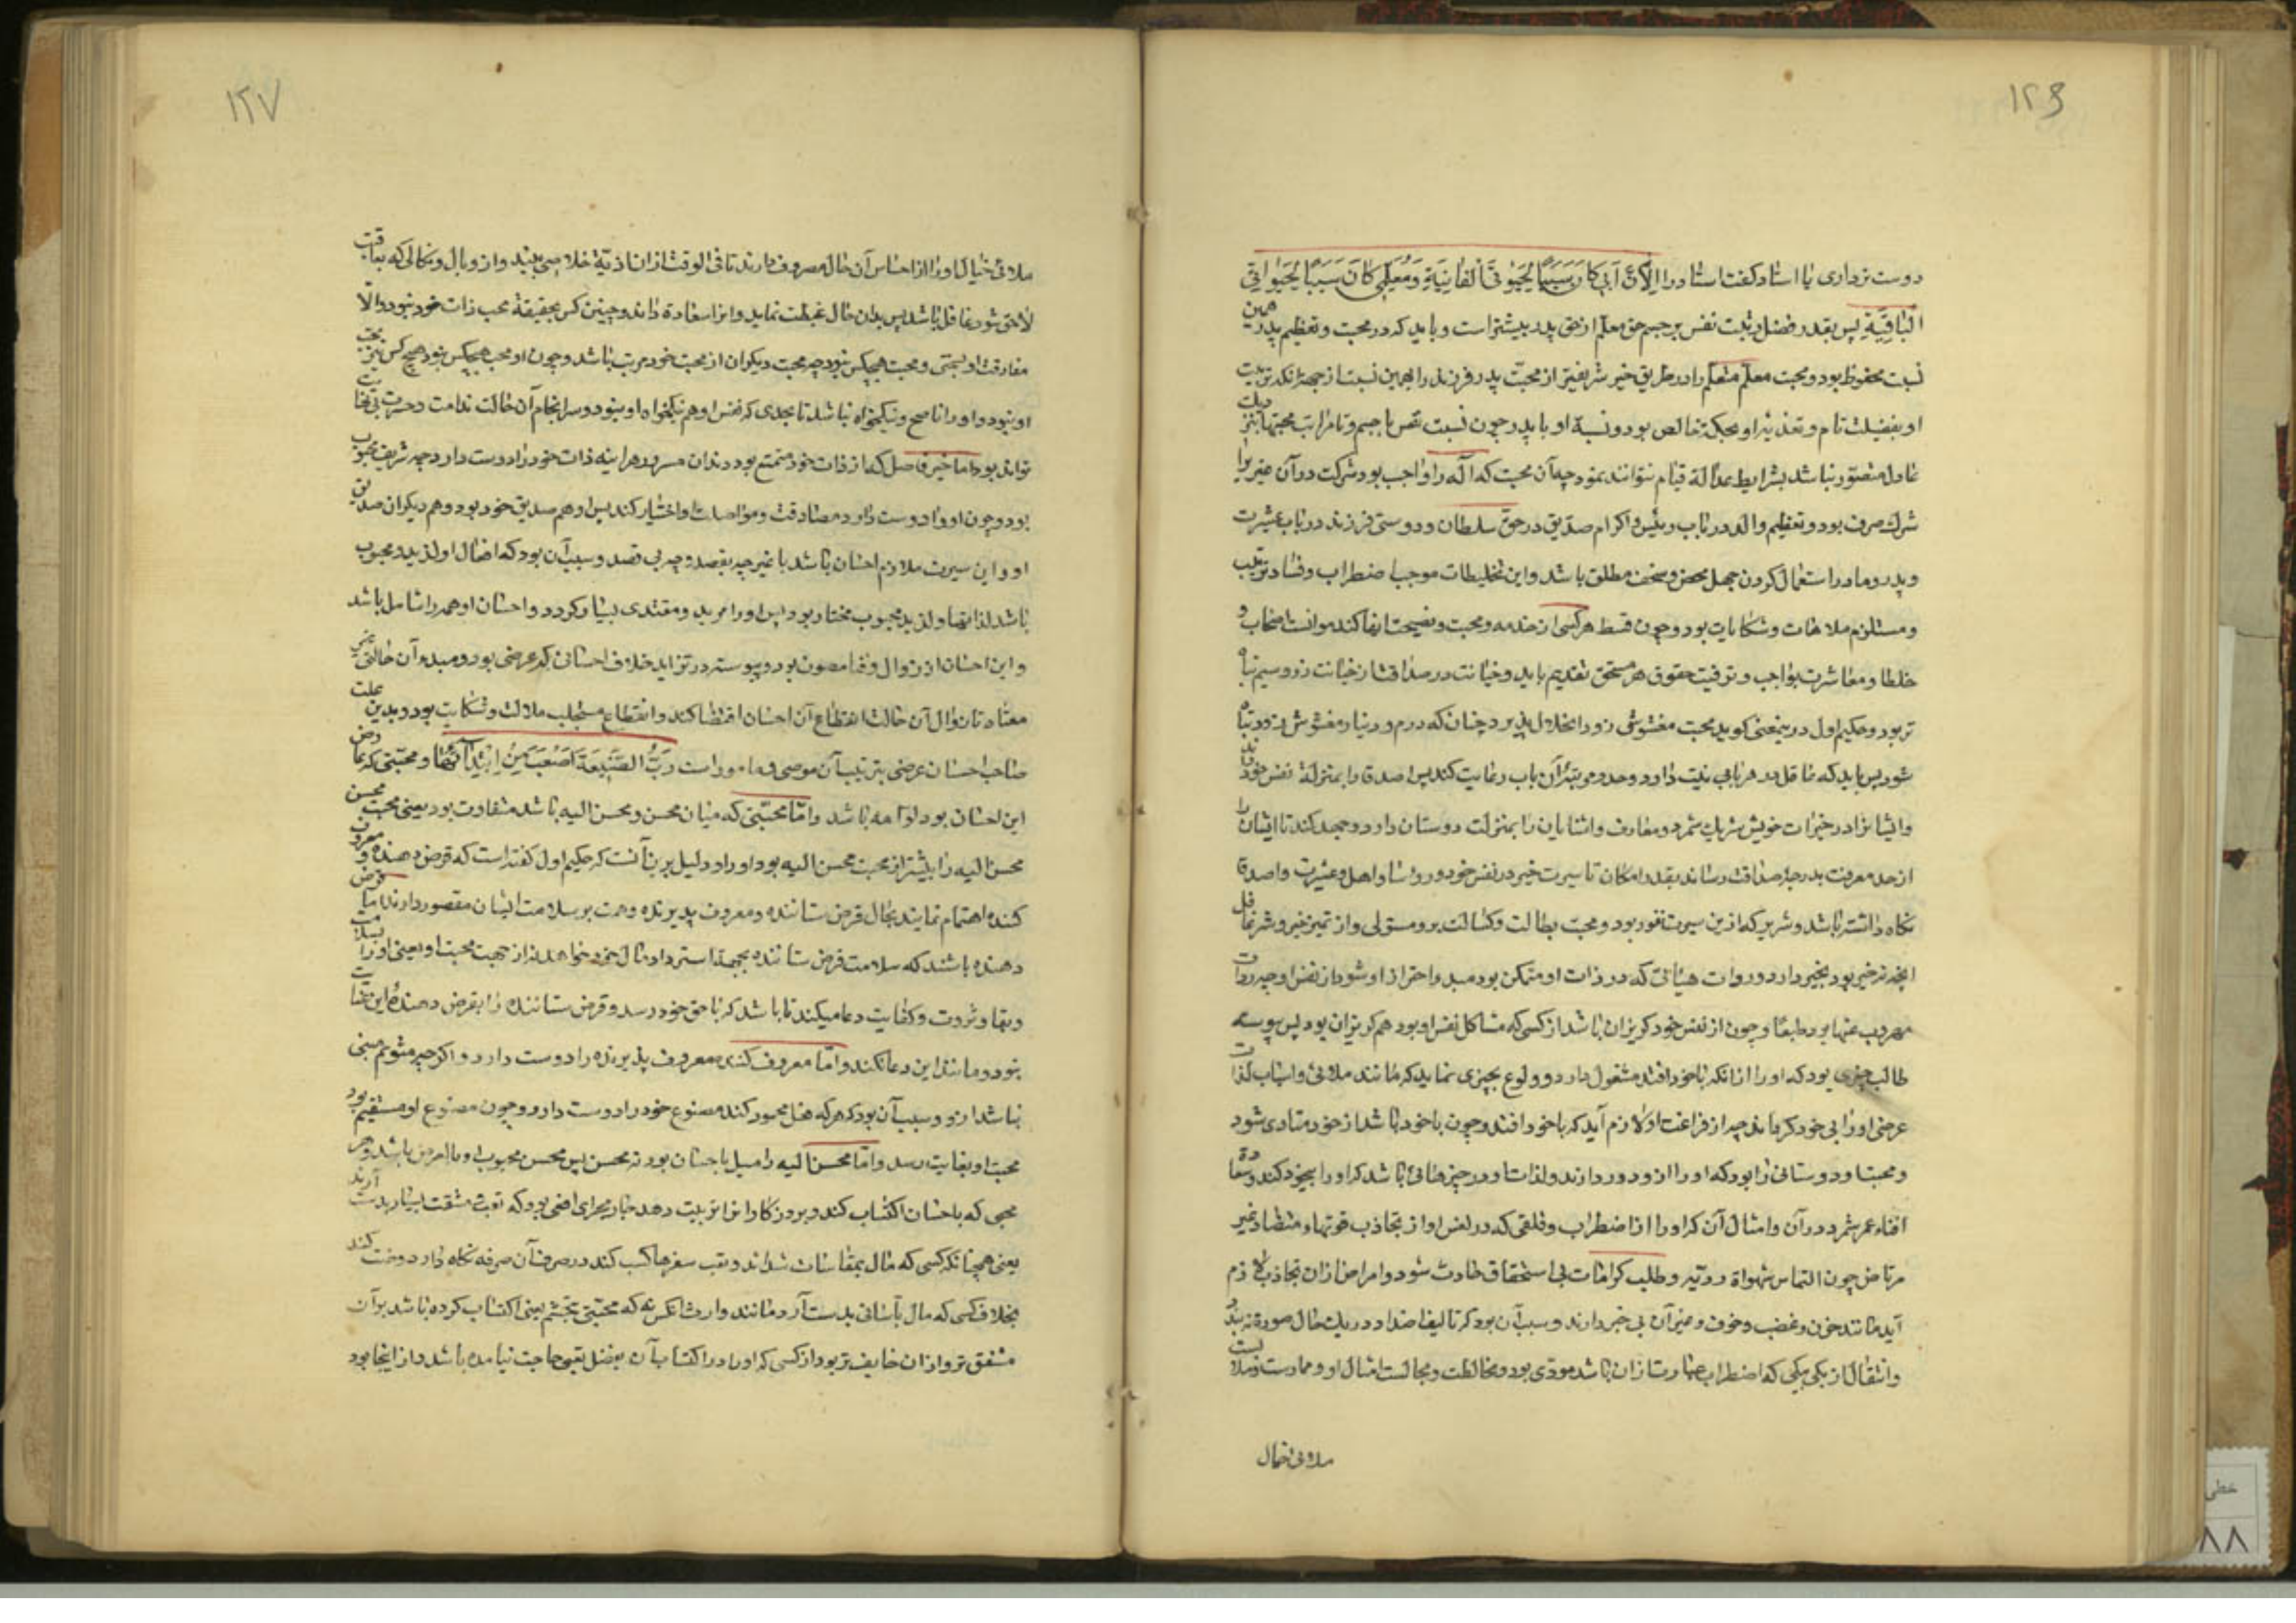 ۱۲۶
دوست تر داری یا استاد گفت استاد را لِاَنَّ اَبی کانَ سَبَباً لِحَیوتی الفانِیَةِ وَ مُعَلِّمی کانَ سَبَباً لِحَیواتی
الباقِیَةِ پس بقدر فضل رتبت نفس بر جسم حق معلم از حق پدر بیشتر است و باید که در محبت و تعظیم پدر همین
نسبت محفوظ بود و محبت معلم متعلم را در طریق خیر شریفتر از محبت پدر فرزند را بهمین نسبت از جهت آنکه تربیت
او بفضیلت تام و تغذیه او بحکمت خالص بود و نسبة او با پدر چون نسبت نفس با جسم و تا مراتب محبتها بنزدیک
عادل متصور نباشد بشرایط عدالة قیام نتوانند نمود چه آن محبت که اله را واجب بود شرکت در آن غیر را
شرک صرف بود و تعظیم والد در باب رئیس و اکرام صدیق در حق سلطان و دوستی فرزند در باب عشیرت
و پدر و مادر استعمال کردن جهل محض و سخف مطلق باشد و این تخلیطات موجب اضطراب و فساد ترتیب
و مستلزم ملامات و شکایات بود و چون قسط هر کسی از خدمه و محبت و نصیحت ایفا کند موانست اصحاب و
خلطا و معاشرت بواجب و توفیت حقوق هر مستحق تقدیم باید و خیانت در صداقت از خیانت در زر و سیم تباه
تر بود و حکیم اول درینمعنی گوید محبت مغشوش زود انحلال پذیرد چنان که درم و دینار مغشوش زود تباه
شود پس باید که عاقل در هر بابی نیت دارد و حد و مرتبهٔ آن باب رعایت کند پس اصدقا را بمنزلهٔ نفس خود داند
و ایشانرا در خیرات خویش شریک شمرد و معارف و آشنایان را بمنزلت دوستان دارد و جهد کند تا ایشان را
از حد معرفت بدرجهٔ صداقت رساند بقدر امکان تا سیرت خیر در نفس خود و رؤسا و اهل و عشیرت و اصدقا
نگاه داشته باشد و شریر که ازین سیرت نفور بود و محبت بطالت و کسالت برو مستولی و از تمیز خیر و شر غافل
آنچه نه خیر بود بخیر دارد و ردات هیأتی که در ذات او متمکن بود مبدا احتراز او شود از نفس او چه ردات
مهروب عنها بود طبعا و چون از نفس خود گریزان باشد از کسی که مشاکل نفس او بود هم گریزان بود پس پیوسته
طالب چیزی بود که او را از آنکه باخود افتد مشغول دارد و ولوع بچیزی نماید که مانند ملاهی و اسباب لذات
عرضی او را بی خود گرداند چه از فراغت او لازم آید که باخود افتد و چون باخود باشد از خود متاذی شود
و محبت او دوستانی را بود که او را ازو دور دارند و لذات او در چیزهائی باشد که او را بیخود کند و سعادة
افناء عمر شمرد در آن و امثال آن که او را از اضطراب و قلقی که در نفس او از تجاذب قوتهاء متضاد غیر
مرتاض چون التماس شهواة ردیه و طلب کرامات بی استحقاق حادث شود و امراض از آن تجاذب لازم
آید مانند حزن و غضب و خوف و غیر آن بی خبر دارند و سبب آن بود که تالیف اضداد در یک حال صورة نبندد
و انتقال از یکی بیکی که اضطراب عبارت از آن باشد موذی بود و مخالطت و مجالست امثال او و ممارست و ملابست
ملاهی خیال
۱۲۷
ملاهی خیال او را از احساس آن حال مصروف دارند تا فی الوقت از ان اذیة خلاصی بیند و از وبال و نکالی که بعاقبت
لاحق شود غافل باشد پس بدان حال غبطت نماید و انرا سعادة داند و چنین کس بحقیقة محب ذات خود نبود والا
مفارقت او نجستی و محب هیچکس نبود چه محبت دیگران از محبت خود مرتب باشد و چون او محب هیچکس نبود هیچ کس نیز محب
او نبود و او را ناصح و نیکخواه نباشد تا بحدی که نفس او هم نیکخواه او نبود و سرانجام آن حالت ندامت و حسرت بی نهایت
تواند بود اما خیر فاضل که از ذات خود متمتع بود و بدان مسرور هراینه ذات خود را دوست دارد چه شریف محبوب
بود و چون او را دوست دارد مصادقت و مواصلت او اختیار کند پس او هم صدیق خود بود و هم دیگران صدیق
او و این سیرت ملازم احسان باشد با غیر چه بقصد و چه بی قصد و سبب آن بود که افعال او لذیذ و محبوب
باشد لذاتها و لذیذ محبوب مختار بود پس او را مرید و مقتدی بسیار گردد و احسان او همه را شامل باشد
و این احسان از زوال و فنا مصون بود و پیوسته در تزاید خلاف احسانی که عرضی بود و مبدء آن حالتی غیر
معتاد تا زوال آن حالت انقطاع آن احسان اقتضا کند و انقطاع مستجلب ملالت و شکایت بود و بدین علت
صاحب احسان عرضی بتربیت آن موصی و مامور است رَبُّ الصَّنیعَةِ اَصعَبُ مِن اِبتِدائِها و محبتی که عارض
این احسان بود لوامه باشد و اما محبتی که میان محسن و محسن الیه باشد متفاوت بود یعنی محبت محسن
محسن الیه را بیشتر از محبت محسن الیه بود او را و دلیل برین آنست که حکیم اول گفته است که قرض دهنده و معروف
کننده اهتمام نمایند بحال قرض ستاننده و معروف پذیرنده و همت بر سلامت ایشان مقصور دارند اما قرض
دهنده باشند که سلامت قرض ستاننده بجهة استرداد مال خود خواهد نه از جهت محبت او یعنی او را بسلامت
و بقا و ثروت و کفایت دعا میکند تا باشد که با حق خود رسد و قرض ستاننده را بقرض دهنده این عنایت
نبود و مانند این دعا نکند و اما معروف کننده معروف پذیرنده را دوست دارد و اگر چه متوقع منفعتی
نباشد ازو و سبب آن بود که هر که فعل محمود کند مصنوع خود را دوست دارد و چون مصنوع او مستقیم بود
محبت او بغایت رسد و اما محسن الیه را میل باحسان بود نه بمحسن پس محسن محبوب او بالعرض باشد و هر
محبی که باحسان اکتساب کند و بروزگار انرا تربیت دهد جاری مجرای ارضی بود که بتعب و مشقت بسیار بدست آرند
یعنی همچنانکه کسی که مال بمقاسات شداید و تعب سفرها کسب کند در صرف آن صرفه نگاه دارد و خست کند
بخلاف کسی که مال بآسانی بدست آرد مانند وارث آنکس نیز که محبتی بتجشم یعنی اکتساب کرده باشد بر آن
مشفق تر و از ان خایف تر بود از کسی که او را در اکتساب آن بفضل تعبی حاجت نیامده باشد و از اینجا بود
خطی
۸۸